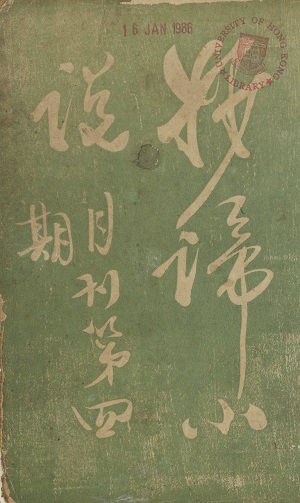 16 JAN 1986
UNIVERSITY OF HONG KONG
LIBRARY
妙諦小
說
月刊第四
期